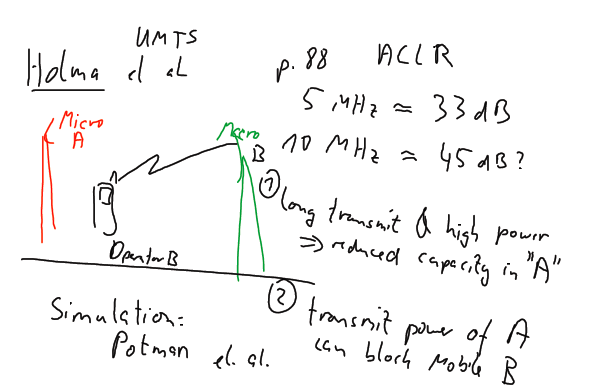 UMTS
Holma el al
p. 88 ACLR
5 MHz ≈ 33 dB
10 MHz ≈ 45 dB?
Micro
A
Macro
B
Operator B
① long transmit & high power
⇒ reduced capacity in "A"
② transmit power of A
can block Mobile B
Simulation:
Potman el. al.